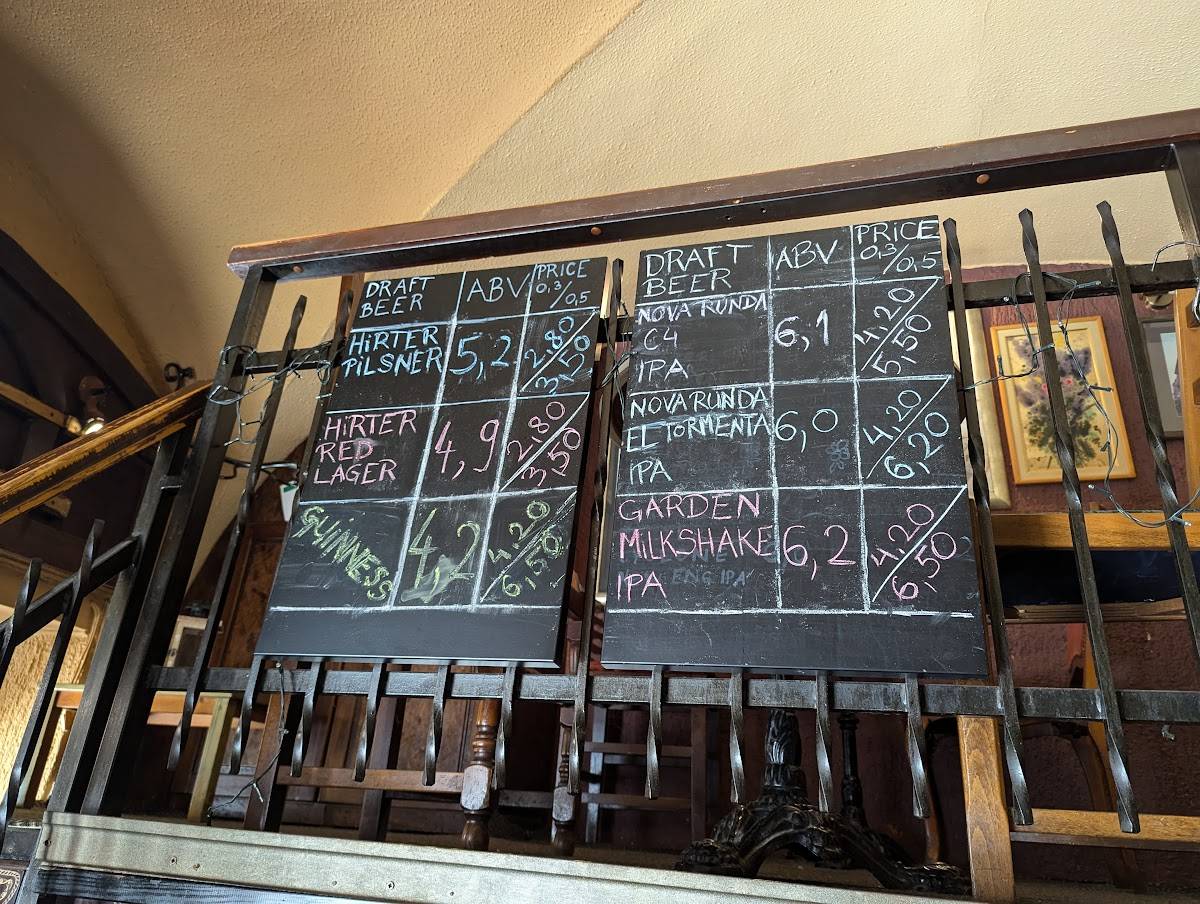 DRAFT BEER ABV PRICE 0,3/0,5
HiRTER PiLSNER 5,2 2,80/3,50
HiRTER RED LAGER 4,9 2,80/3,50
GUINNESS 4,2 4,20/6,50
DRAFT BEER ABV PRICE 0,3/0,5
NOVA RUNDA C4 IPA 6,1 4,20/5,50
NOVA RUNDA EL TORMENTA IPA 6,0 4,20/6,20
GARDEN MILKSHAKE IPA 6,2 4,20/6,50
ENG IPA